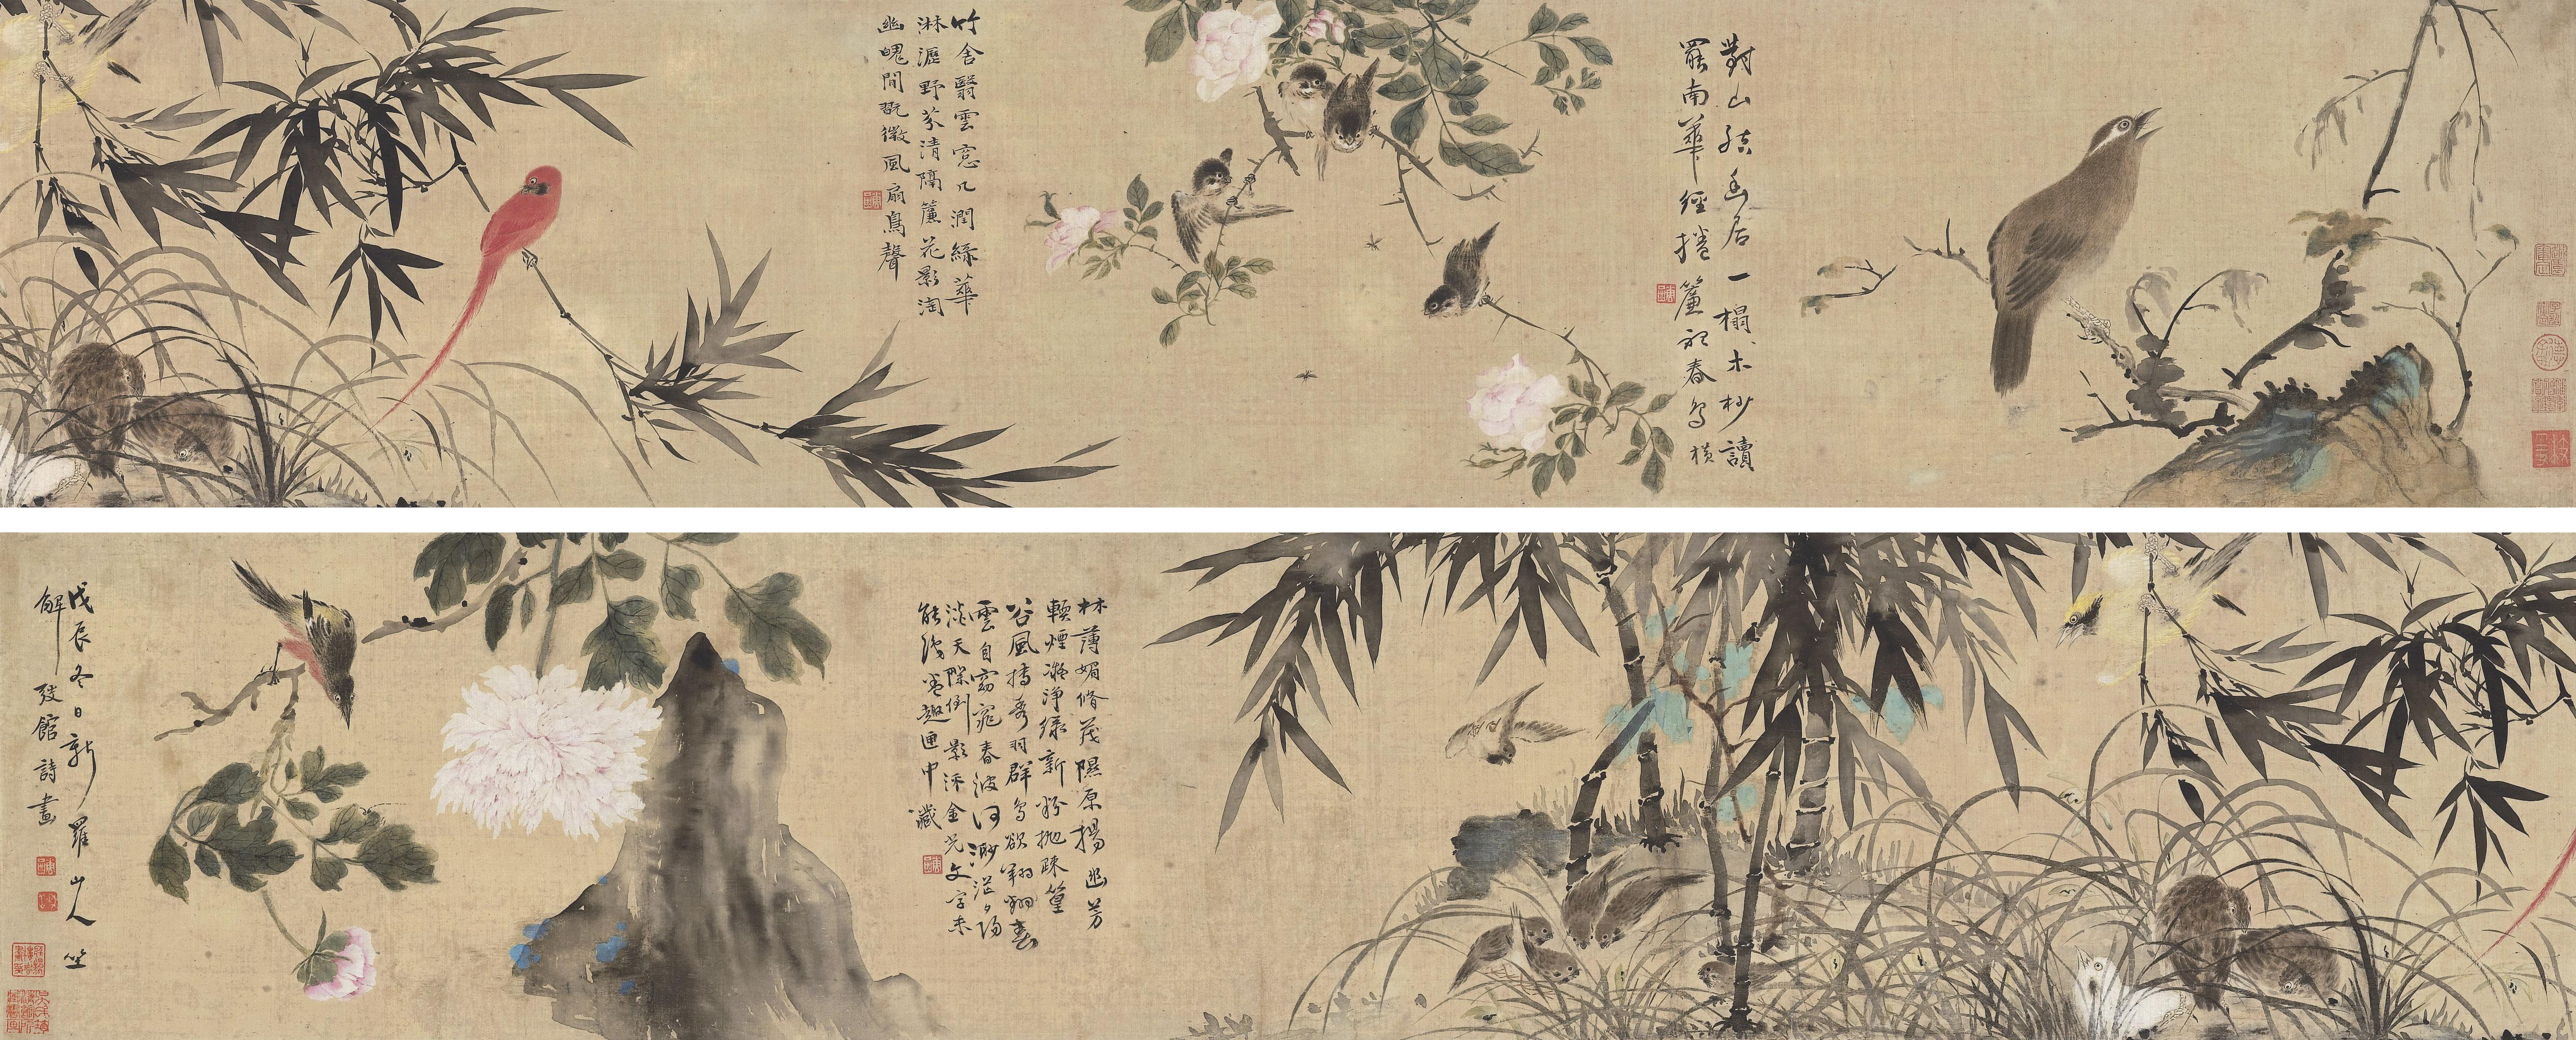 對山結幽居一榻木杪讀
罷南華經捲簾視春鳥橫
竹舍翳雲窓几潤綠華
淋瀝野芬清隔簾花影淘
幽魄間翫微風扇鳥聲
林薄媚脩茂隰原揚幽芳
輭煙凝淨綠新粉拋疎篁
谷風摶秀羽群鳥欲翱翔春
雲自窈窕春波何渺茫夕陽
淡天際倒影添金光文字未
能盡趣匣中藏
戊辰冬日新羅山人坐
解弢館詩畫